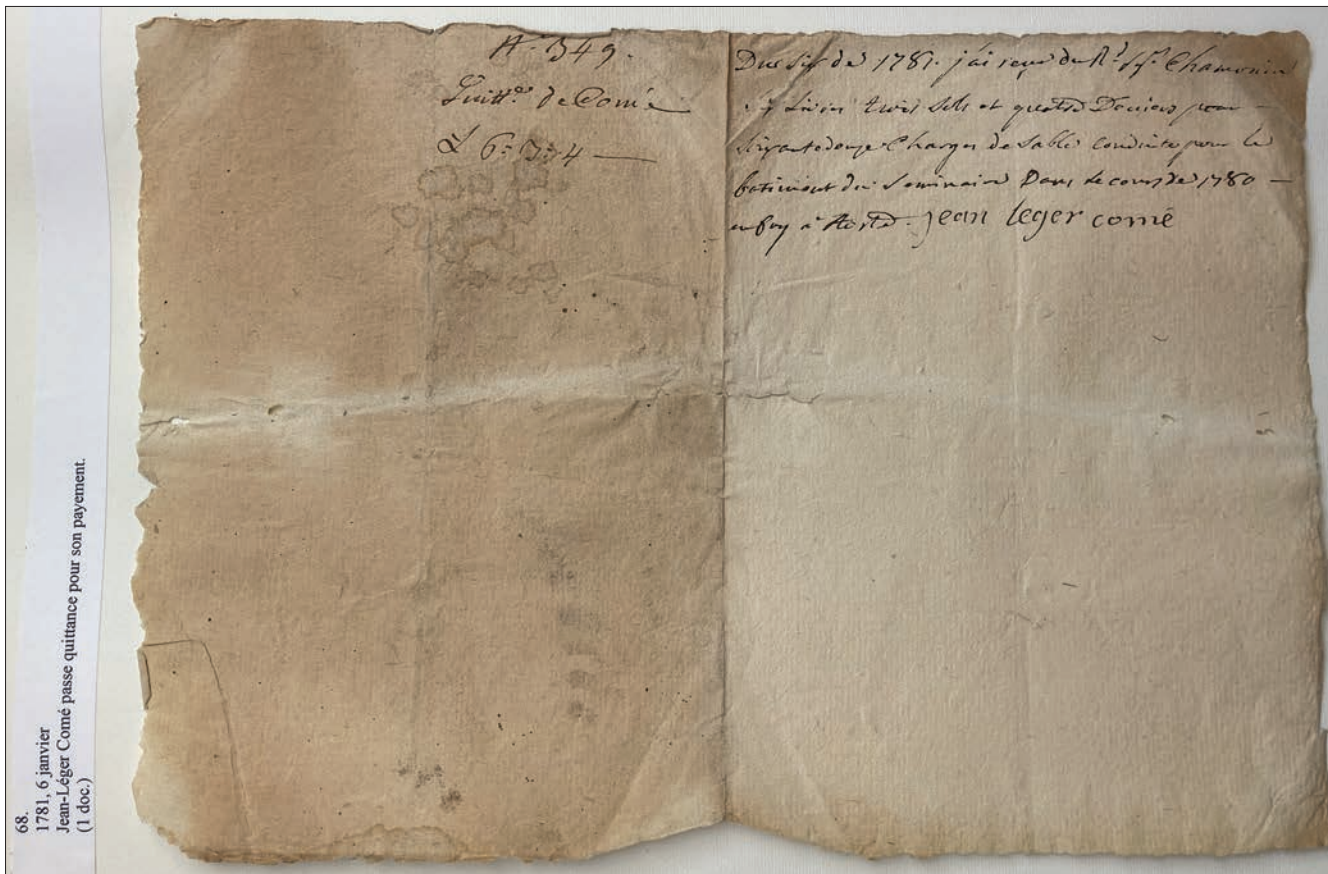 68.
1781, 6 janvier
Jean-Léger Comé passe quittance pour son payement.
(1 doc.)
N.° 349.
Quitt.ce de Comé
L 6: 3: 4
Du six de 1781. j'ai reçu du R.d Sr. Chamonin
six Livres trois sols et quatre Deniers pour
soixante douze Charges de sable conduite pour le
batiment du Seminaire Dans le cours de 1780
en foy à Aoste. jean leger comé